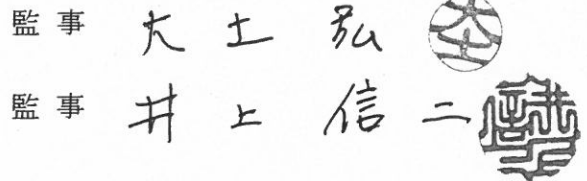 監事 大土弘
監事 井上信二